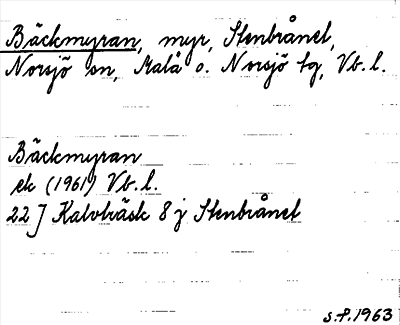 Bäckmyran, myr, Stenbrånet,
Norsjö sn, Malå o. Norsjö tg, Vb. l.
Bäckmyran
ek (1961) Vb. l.
22 J Kalvträsk 8 j Stenbrånet
s.f. 1963